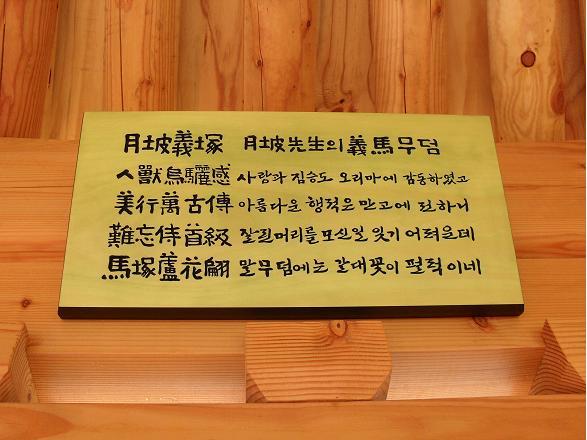 月坡義塚 月坡先生의 義馬무덤
人獸烏驪感 사람과 짐승도 오리마에 감동하였고
美行萬古傳 아름다운 행적은 만고에 전하니
難忘侍首級 잘린머리를 모신일 잊기 어려운데
馬塚蘆花翩 말무덤에는 갈대꽃이 펄럭이네